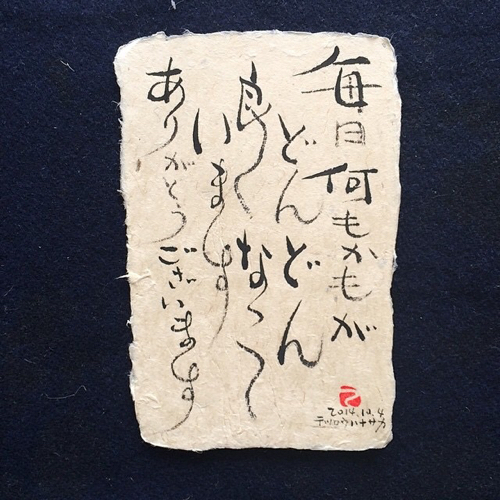 毎日何もかもが
どんどん
良くなって
います
ありがとうございます
2014.10.4
テツロウハナサカ